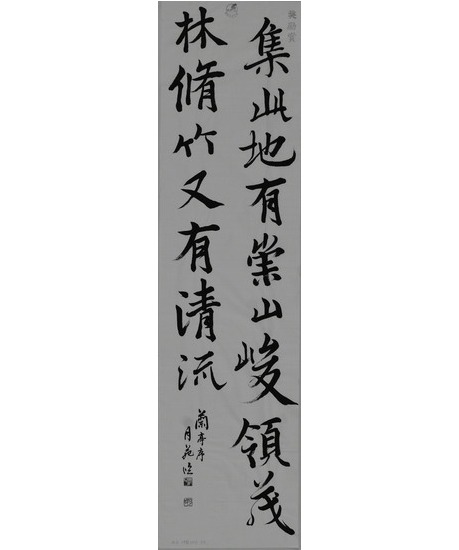 集此地有崇山峻領茂
林脩竹又有清流
蘭亭序
月苑临